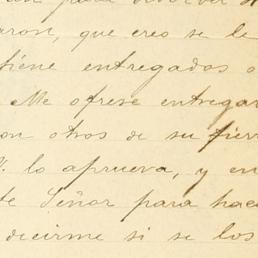 para devolver
aron, que creo se le
tiene entregados o
Me ofrese entregar
on otros de su fierr
V. lo aprueva, y en
te Señor para hac
decirme si se los